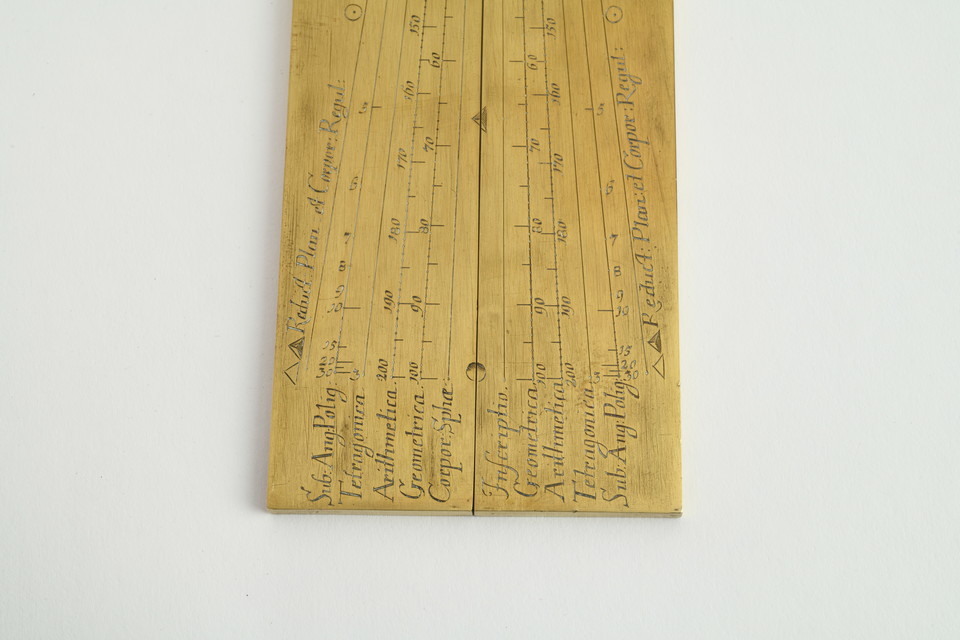 Reduct: Plan: et Corpor: Regul:
Sub: Ang: Polig.
Tetragonica.
Arithmetica.
Geometrica.
Corpor: Sphæ:
Inscriptio.
Geometrica.
Arithmetica.
Tetragonica.
Sub: Ang: Polig.
Reduct: Plan: et Corpor: Regul:
5
6
7
8
9
10
15
20
30
3
150
160
170
180
190
200
60
70
80
90
100
60
70
80
90
100
150
160
170
180
190
200
5
6
7
8
9
10
15
20
30
3